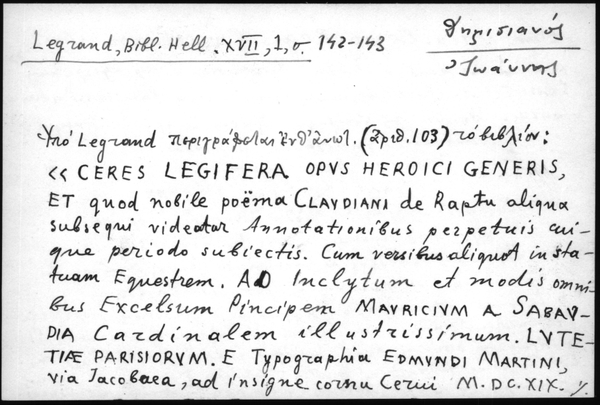 Legrand, Bibl. Hell. XVII, 1, σ. 142-143
Θηρισιανός
Ἰωάννης
Ὑπό Legrand περιγράφεται ἐνθ' ἀνωτ. (ἀριθ. 103) τό βιβλίον:
<< CERES LEGIFERA OPVS HEROICI GENERIS,
ET quod nobile poëma CLAVDIANI de Raptu aliqua
subsequi videatur Annotationibus perpetuis cui-
que periodo subiectis. Cum versibus aliquot in sta-
tuam Equestrem. AD Inclytum et modis omni-
bus Excelsum Pincipem MAVRICIVM A SABAV-
DIA Cardinalem illustrissimum. LVTE-
TIÆ PARISIORVM. E Typographia EDMVNDI MARTINI,
via Jacobaea, ad insigne cornu Cerui M. DC. XIX.